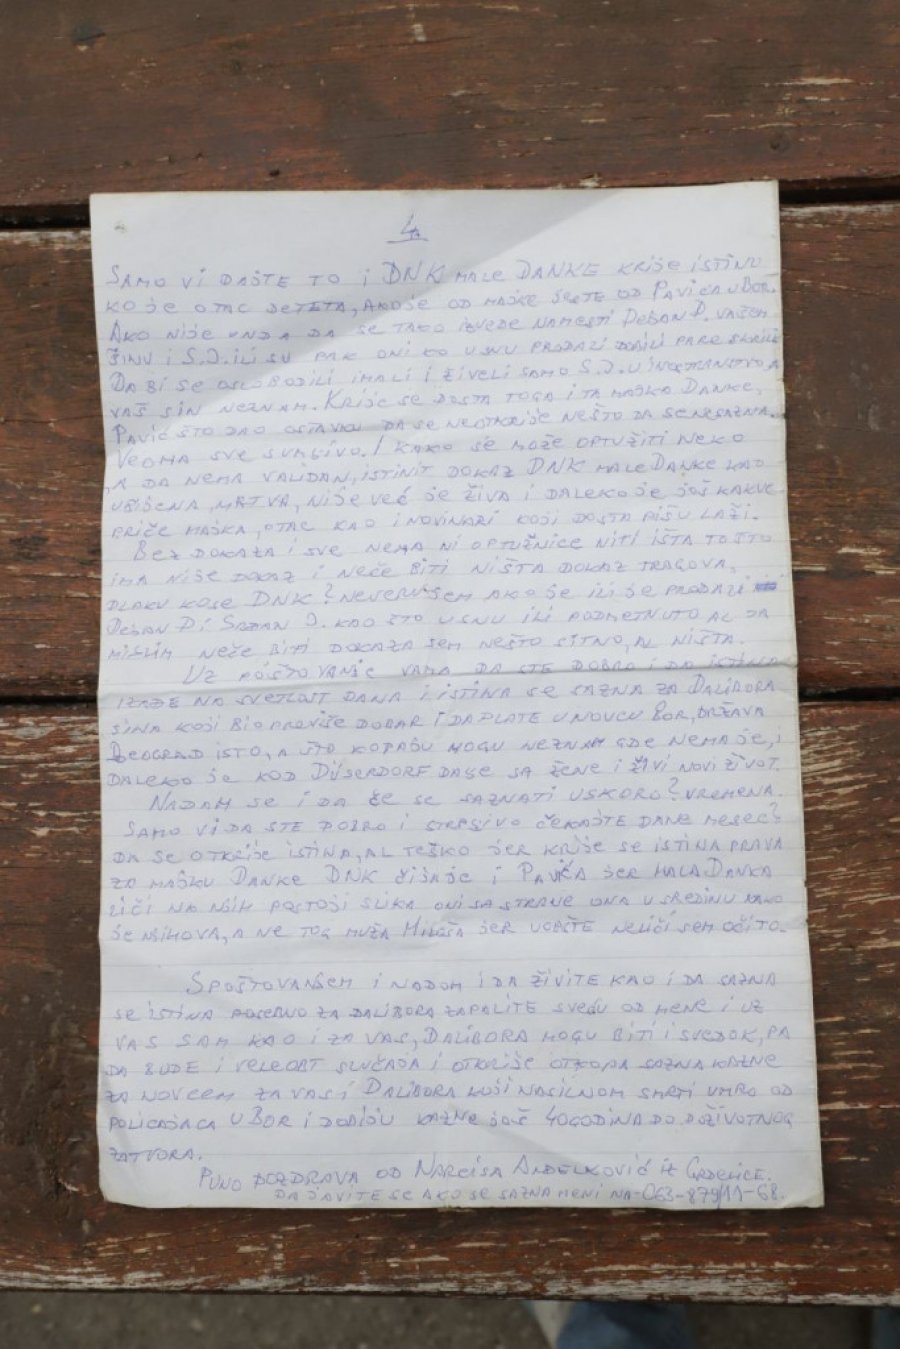 4
SAMO VI DAJTE TO I DNK MALE DANKE KRIJE ISTINU
KO JE OTAC DETETA, AKO JE OD MAJKE JESTE OD PAVIĆA U BOR.
AKO NIJE ONDA DA SE TAKO IZVEDE NAMESTI DEJAN D. VAŠEM
SINU I S.J. ILI SU PAK ONI KO USNU PRODAJI DOBILI PARE SKRILI
DA BI SE OSLOBODILI IMALI I ŽIVELI SAMO S.J. U INOSTRANSTVO, A
VAŠ SIN NEZNAM. KRIJE SE DOSTA TOGA I TA MAJKA DANKE,
PAVIĆ ŠTO DAO OSTAVKU DA SE NEOTKRIJE NEŠTO DA SE NESAZNA.
VEOMA SVE SUMJIVO. I KAKO SE MOŽE OPTUŽITI NEKO
A DA NEMA VALIDAN, ISTINIT DOKAZ DNK MALE DANKE KAO
UBIJENA, MRTVA, NIJE VEĆ JE ŽIVA I DALEKO JE JOŠ KAKVE
PRIČE MAJKA, OTAC KAO I NOVINARI KOJI DOSTA PIŠU LAŽI.
BEZ DOKAZA I SVE NEMA NI OPTUŽNICE NITI IŠTA TO ŠTO
IMA NIJE DOKAZ I NEČE BITI NIŠTA DOKAZ TRAGOVA,
DLAKU KOSE DNK? NEVERUJEM AKO JE ILI JE PRODAJI
DEJAN D I SRĐAN J. KAO ŠTO USNU ILI PODMETNUTO AL JA
MISLIM NEČE BITI DOKAZA SEM NEŠTO SITNO, AL NIŠTA.
UZ POŠTOVANJE VAMA DA STE DOBRO I DA ISTINA
IZAĐE NA SVETLOST DANA I ISTINA SE SAZNA ZA DALIBORA
SINA KOJI BIO PREVIŠE DOBAR I DA PLATE U NOVCU BOR, DRŽAVA
BEOGRAD ISTO, A ŠTO KOPAJU MOGU NEZNAM GDE NEMA JE, I
DALEKO JE KOD DIJSERDORF DALJE SA ŽENE I ŽIVI NOVI ŽIVOT.
NADAM SE I DA ĆE SE SAZNATI USKORO? VREMENA.
SAMO VI DA STE DOBRO I STRPJIVO ČEKAJTE DANE MESEC?
DA SE OTKRIJE ISTINA, AL TEŠKO JER KRIJE SE ISTINA PRAVA
ZA MAJKU DANKE DNK I PAVIĆA JER MALA DANKA
LIČI NA NJIH POSTOJI SLIKA ONI SA STRANE ONA U SREDINU KAKO
JE NJIHOVA, A NE TOG MUŽA MILOŠA JER UOPŠTE NELIČI SEM OČI TO.
SPOŠTOVANJEM I NADOM I DA ŽIVITE KAO I DA SAZNA
SE ISTINA POSEBNO ZA DALIBORA ZAPALITE SVEĆU OD MENE I UZ
VAS SAM KAO I ZA VAS, DALIBORA MOGU BITI I SVEDOK, PA
DA BUDE I VELEOBT SLUČAJA I OTKRIJE SAZNA KAZNE
ZA NOVCEM ZA VAS I DALIBORA KOJI NASILNOM SMRTI UMRO OD
POLICAJACA U BOR I DOBIJU KAZNE JOŠ 40 GODINA DO DOŽIVOTNOG
ZATVORA.
PUNO POZDRAVA OD NARCISA ANĐELKOVIĆ IZ GRDELICE.
DA JAVITE SE AKO SE SAZNA MENI NA - 063-879/11-68.